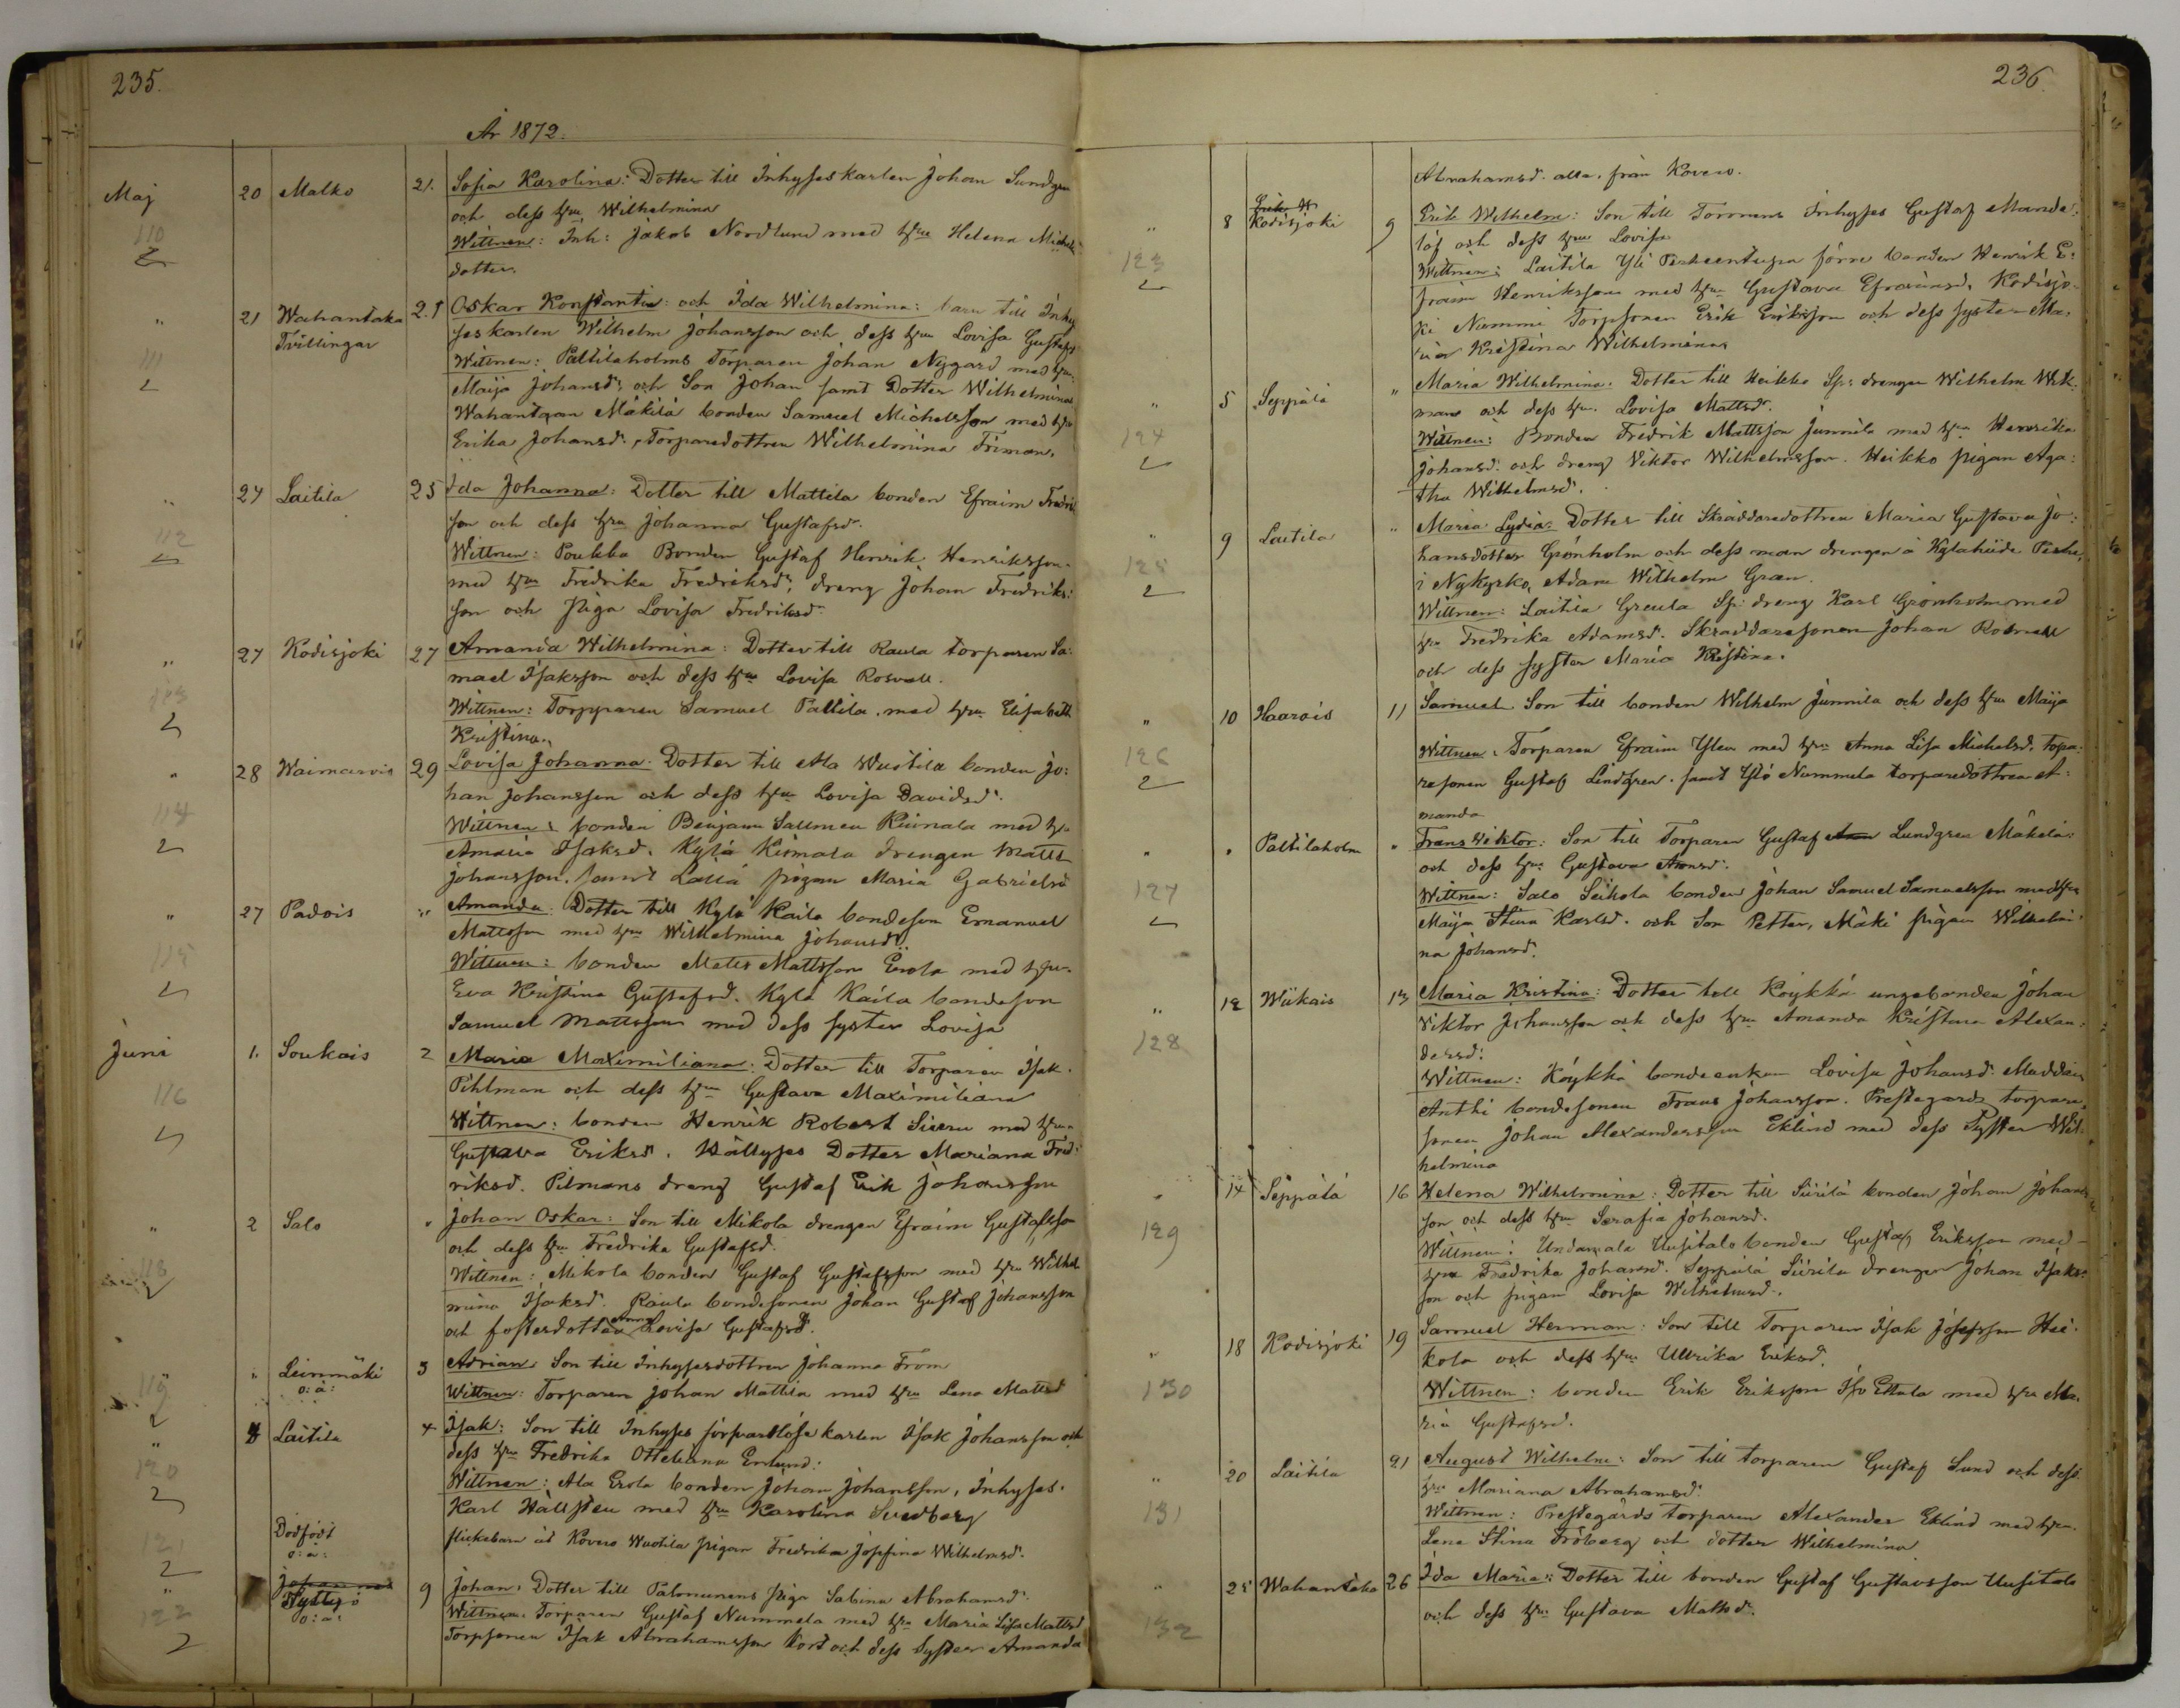 235.
År 1872.
Maj 20 Malko 21. Sofia Karolina: Dotter till Inhyseskarlen Johan Sundgren
och dess hru Wilhelmina
110 Wittnen: Inh: Jakob Nordlund med hru Helena Michels
dotter.
" 21 Wahantaka 21 Oskar Konstantin: och Ida Wilhelmina: barn till Inhy
Tvillingar seskarlen Wilhelm Johansson och dess hru Lovisa Gustafsd
111 Wittnen: Paltilaholms Torparen Johan Nygard med hru
2 Maija Johansd: och Son Johan samt Dotter Wilhelmina
Wahantaan Mäkilä bonden Samuel Michelsson med hru
Erika Johansd:, Torparedottren Wilhelmina Friman.
" 24 Laitila 25 Ida Johanna: Dotter till Mattila bonden Efraim Fredrik
son och dess hru Johanna Gustafsd.
112 Wittnen: Poukka Bonden Gustaf Henrik Henriksson
2 med hru Fredrika Fredriksd:, dreng Johan Fredriks:
son och Piga Lovisa Fredriksd.
" 27 Kodisjoki 27 Amanda Wilhelmina: Dotter till Raula torparen Sa:
muel Isaksson och dess hru Lovisa Rosvall.
113 Wittnen: Torpparen Samuel Pallila med hru Elisabeth
2 Kristina.
" 28 Waimarois 29 Lovisa Johanna. Dotter till Ala Wustila bonden Jo:
han Johansson och dess hru Lovisa Davidsd.
114 Wittnen: bonden Benjam Sallmen Riinala med hr
2 Amaria Isaksd. Kylä Kiimala drengen Matts
Johansson. samt Lassa pigan Maria Gabrielsd
" 27 Padois " Amanda. Dotter till Kylä Kaila bondeson Emanuel
Mattsson med hru Wilhelmina Johansd.
115 Wittnen: bonden Matts Mattsson Erola med hru
2 Eva Kristina Gustafsd. Kylä Kaila bondeson
Samuel Mattsson med dess syster Lovisa
Juni 1. Soukais 2 Maria Maximiliana: Dotter till Torparen Isak
Pihlman och dess hru Gustava Maximiliana
116 Wittnen: bonden Henrik Robert Sieru med hru
2 Gustava Eriksd. Hällyses Dotter Mariana Fred:
riksd. Pilmans dreng Gustaf Erik Johansson
" 2 Salo " Johan Oskar: Son till Mikola drengen Efraim Gustafsson
och dess hru Fredrika Gustafsd.
118 Wittnen: Mikola bonden Gustaf Gustafsson med hru Wilhel
2 mina Isaksd. Raula bondesonen Johan Gustaf Johansson
och fosterdotter Anna Lovisa Gustafsd.
" " Leinmäki 3 Adrian: Son till Inhysesdottren Johanna From
119 o: ä: Wittnen: Torparen Johan Mattila med hru Lena Mattsd
2
" 4 Laitila 4 Isak: Son till Inhyses försvarslösa karlen Isak Johansson och
120 dess hru Fredrika Otteliana Enlund:
2 Wittnen: Ala Erola bonden Johan Johansson, Inhyses.
Karl Hällsten med hru Karolina Svedberg
121 Dödfödt flickebarn åt Kovero Wuotila pigan Fredrika Josefina Wilhelmsd.
2 o: ä:
" Pyttyö 9 Johan: Dotter till Palomunens Piga Sabina Abrahamsd.
122 o: ä: Wittnen. Torparen Gustaf Nummela med hru Maria Lisa Mattsd
2 Torpsonen Isak Abrahamsson Kort och dess Syster Amanda
236.
Abrahamsd. alla, från Kovero.
" 8 Kodisjoki 9 Erik Wilhelm: Son till Tormens Inhyses Gustaf Mande:
löf och dess hru Lovisa
123 Wittnen: Laitila Yli Perheentupa förre bonden Henrik E:
2 fraim Henriksson med hru Gustava Efraimsd, Kodisjo
ki Nummi Torpsonen Erik Eriksson och dess syster Ma:
ria Kristina Wilhelmina
" 5 Seppälä " Maria Wilhelmina. Dotter till Heikko Sp: drengen Wilhelm Wik:
man och dess hru. Lovisa Mattsd.
124 Wittnen: Bonden Fredrik Mattsson Junnila med hru Henrika
2 Johansd. och dreng Viktor Wilhelmsson. Heikko pigan Aga:
tha Wilhelmsd.
" 9 Laitila " Maria Lydia: Dotter till Skräddaredottren Maria Gustava Jo:
hansdotter Grönholm och dess man drengen å Kylahiide
125 i Nykyrko, Adam Wilhelm Gran.
2 Wittnen: Laitila Greula Sp: dreng Karl Grönholm med
hru Fredrika Adamsd. Skräddaresonen Johan Rosvall
och dess syster Maria Kristina.
" 10 Haarois 11 Samuel Son till bonden Wilhelm Junnila och dess hru Maija
126 Wittnen. Torparen Efraim Ylen med hru Anna Lisa Michelsd. Topa:
2 resonen Gustaf Lindgren. samt Ylö Nummela torparedottren A:
manda
" " Paltilaholm " Frans Wiktor: Son till Torparen Gustaf Lundgren Mäkelä:
och dess hru Gustava Amnsd.
127 Wittnen: Salo Seikola bonden Johan Samuel Samuelsson med hru
2 Maija Stina Karlsd. och Son Petter, Mäki pigan Wilhelmi
na Johansd.
" 12 Wiikais 13 Maria Kristina: Dotter till Köykkä ungebonden Johan
Viktor Johansson och dess hru Amanda Kristina Alexan:
128 dersd:
Wittnen: Köykkä bondeenkan Lovisa Johansd. Maddain
Anthi bondesonen Frans Johansson. Prestegards torpare
sonen Johan Alexandersson Eklind med dess Syster Wil
helmina
" 14 Seppälä 16 Helena Wilhelmina: Dotter till Siirilä bonden Johan Johans
son och dess hru Serafia Johansd.
129 Wittnen: Undamala Uusitalo bonden Gustaf Eriksson med
hru Fredrika Johansd. Seppälä Siirila drengen Johan Isaks
son och pigan Lovisa Wilhelmsd.
" 18 Kodisjoki 19 Samuel Herman: Son till Torparen Isak Josefsson Hei:
kola och dess hru Ullrika Eriksd.
130 Wittnen: bonden Erik Eriksson Iso Ettala med hru Ma.
ria Gustafsd.
" 20 Laitila 21 August Wilhelm: Son till torparen Gustaf Lund och dess
hru Mariana Abrahamsd.
131 Wittnen: Prestegårds torparen Alexander Eklind med hru.
Lena Stina Fröberg och dotter Wilhelmina
" 25 Wahantaka 26 Ida Maria: Dotter till bonden Gustaf Gustavsson Uusitalo
132 och dess hru Gustava Mattsd.